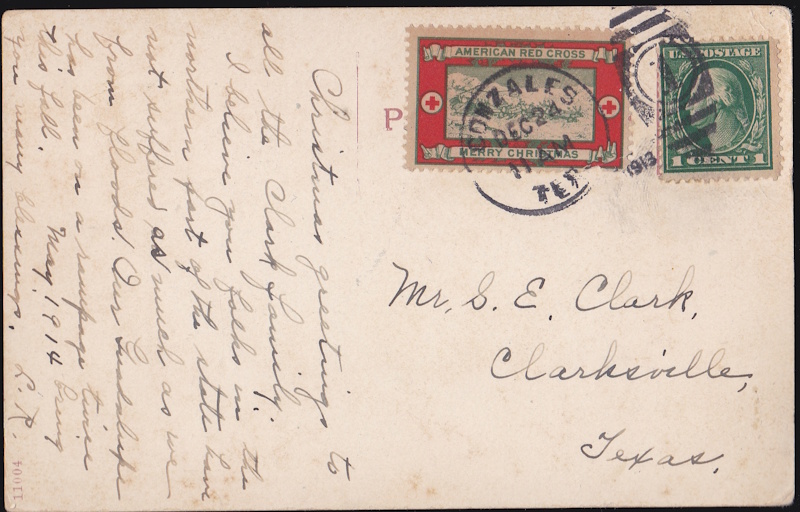 Christmas greetings to
all the Clark family.
I believe you folks in the
northern part of the state have
not suffered as much as we
from floods. Our Guadalupe
has been on a rampage twice
this fall. May 1914 bring
you many blessings. L. R.
11004
P
AMERICAN RED CROSS
MERRY CHRISTMAS
GONZALES
DEC 24
11 AM
TEX.
1913
U.S. POSTAGE
1 CENT 1
Mr. S. E. Clark,
Clarksville,
Texas.